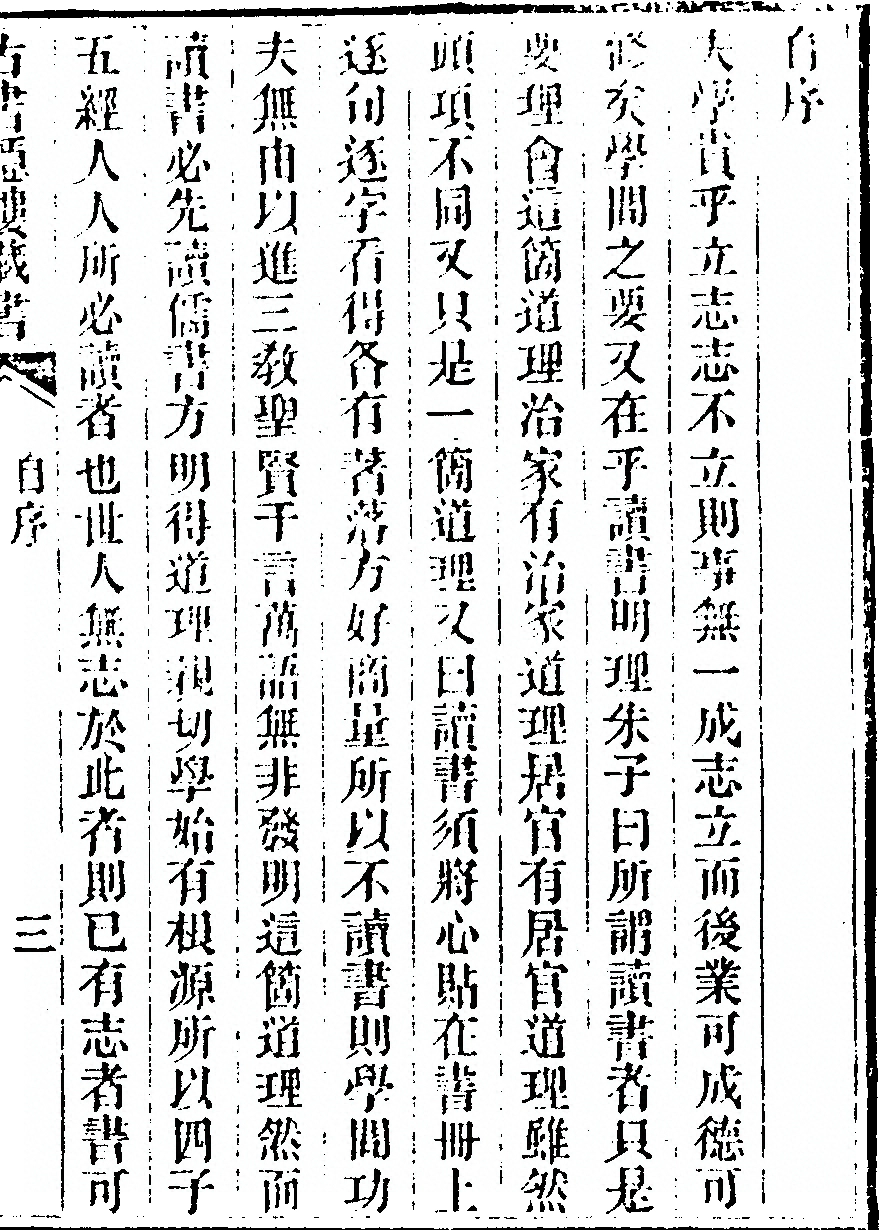 自序
夫學貴乎立志志不立則事無一成志立而後業可成德可
修矣學問之要又在乎讀書明理朱子曰所謂讀書者只是
要理會這箇道理治家有治家道理居官有居官道理雖然
頭項不同又只是一箇道理又曰讀書須將心貼在書冊上
逐句逐字看得各有著落方好商量所以不讀書則學問功
夫無由以進三敎聖賢千言萬語無非發明這箇道理然而
讀書必先讀儒書方明得道理親切學始有根源所以四子
五經人人所必讀者也世人無志於此者則已有志者書可
古書隱樓藏書
自序
三